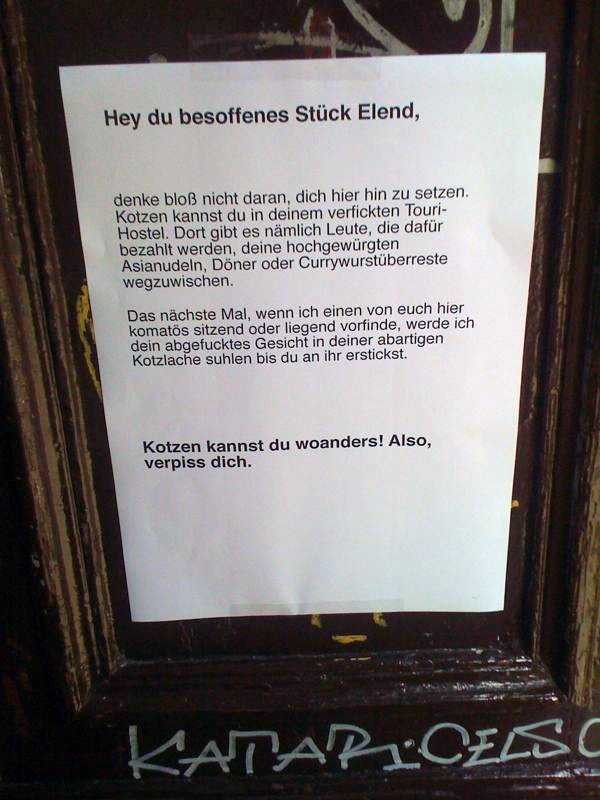 Hey du besoffenes Stück Elend,
denke bloß nicht daran, dich hier hin zu setzen.
Kotzen kannst du in deinem verfickten Touri-
Hostel. Dort gibt es nämlich Leute, die dafür
bezahlt werden, deine hochgewürgten
Asianudeln, Döner oder Currywurstüberreste
wegzuwischen.
Das nächste Mal, wenn ich einen von euch hier
komatös sitzend oder liegend vorfinde, werde ich
dein abgefucktes Gesicht in deiner abartigen
Kotzlache suhlen bis du an ihr erstickst.
Kotzen kannst du woanders! Also,
verpiss dich.